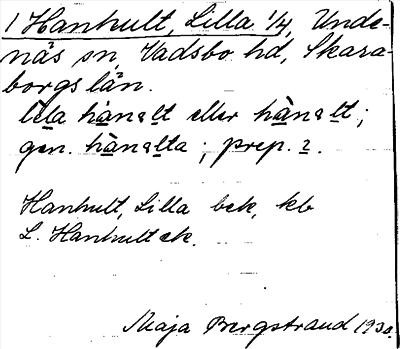 1 Hanhult, Lilla 1/4, Unde-
näs sn, Vadsbo hd, Skara-
borgs län.
lila hànalt eller hànalt;
gen. hànalta; prep. 2.
Hanhult, Lilla bek, kb
L. Hanhult ek.
Maja Bergstrand 1930.